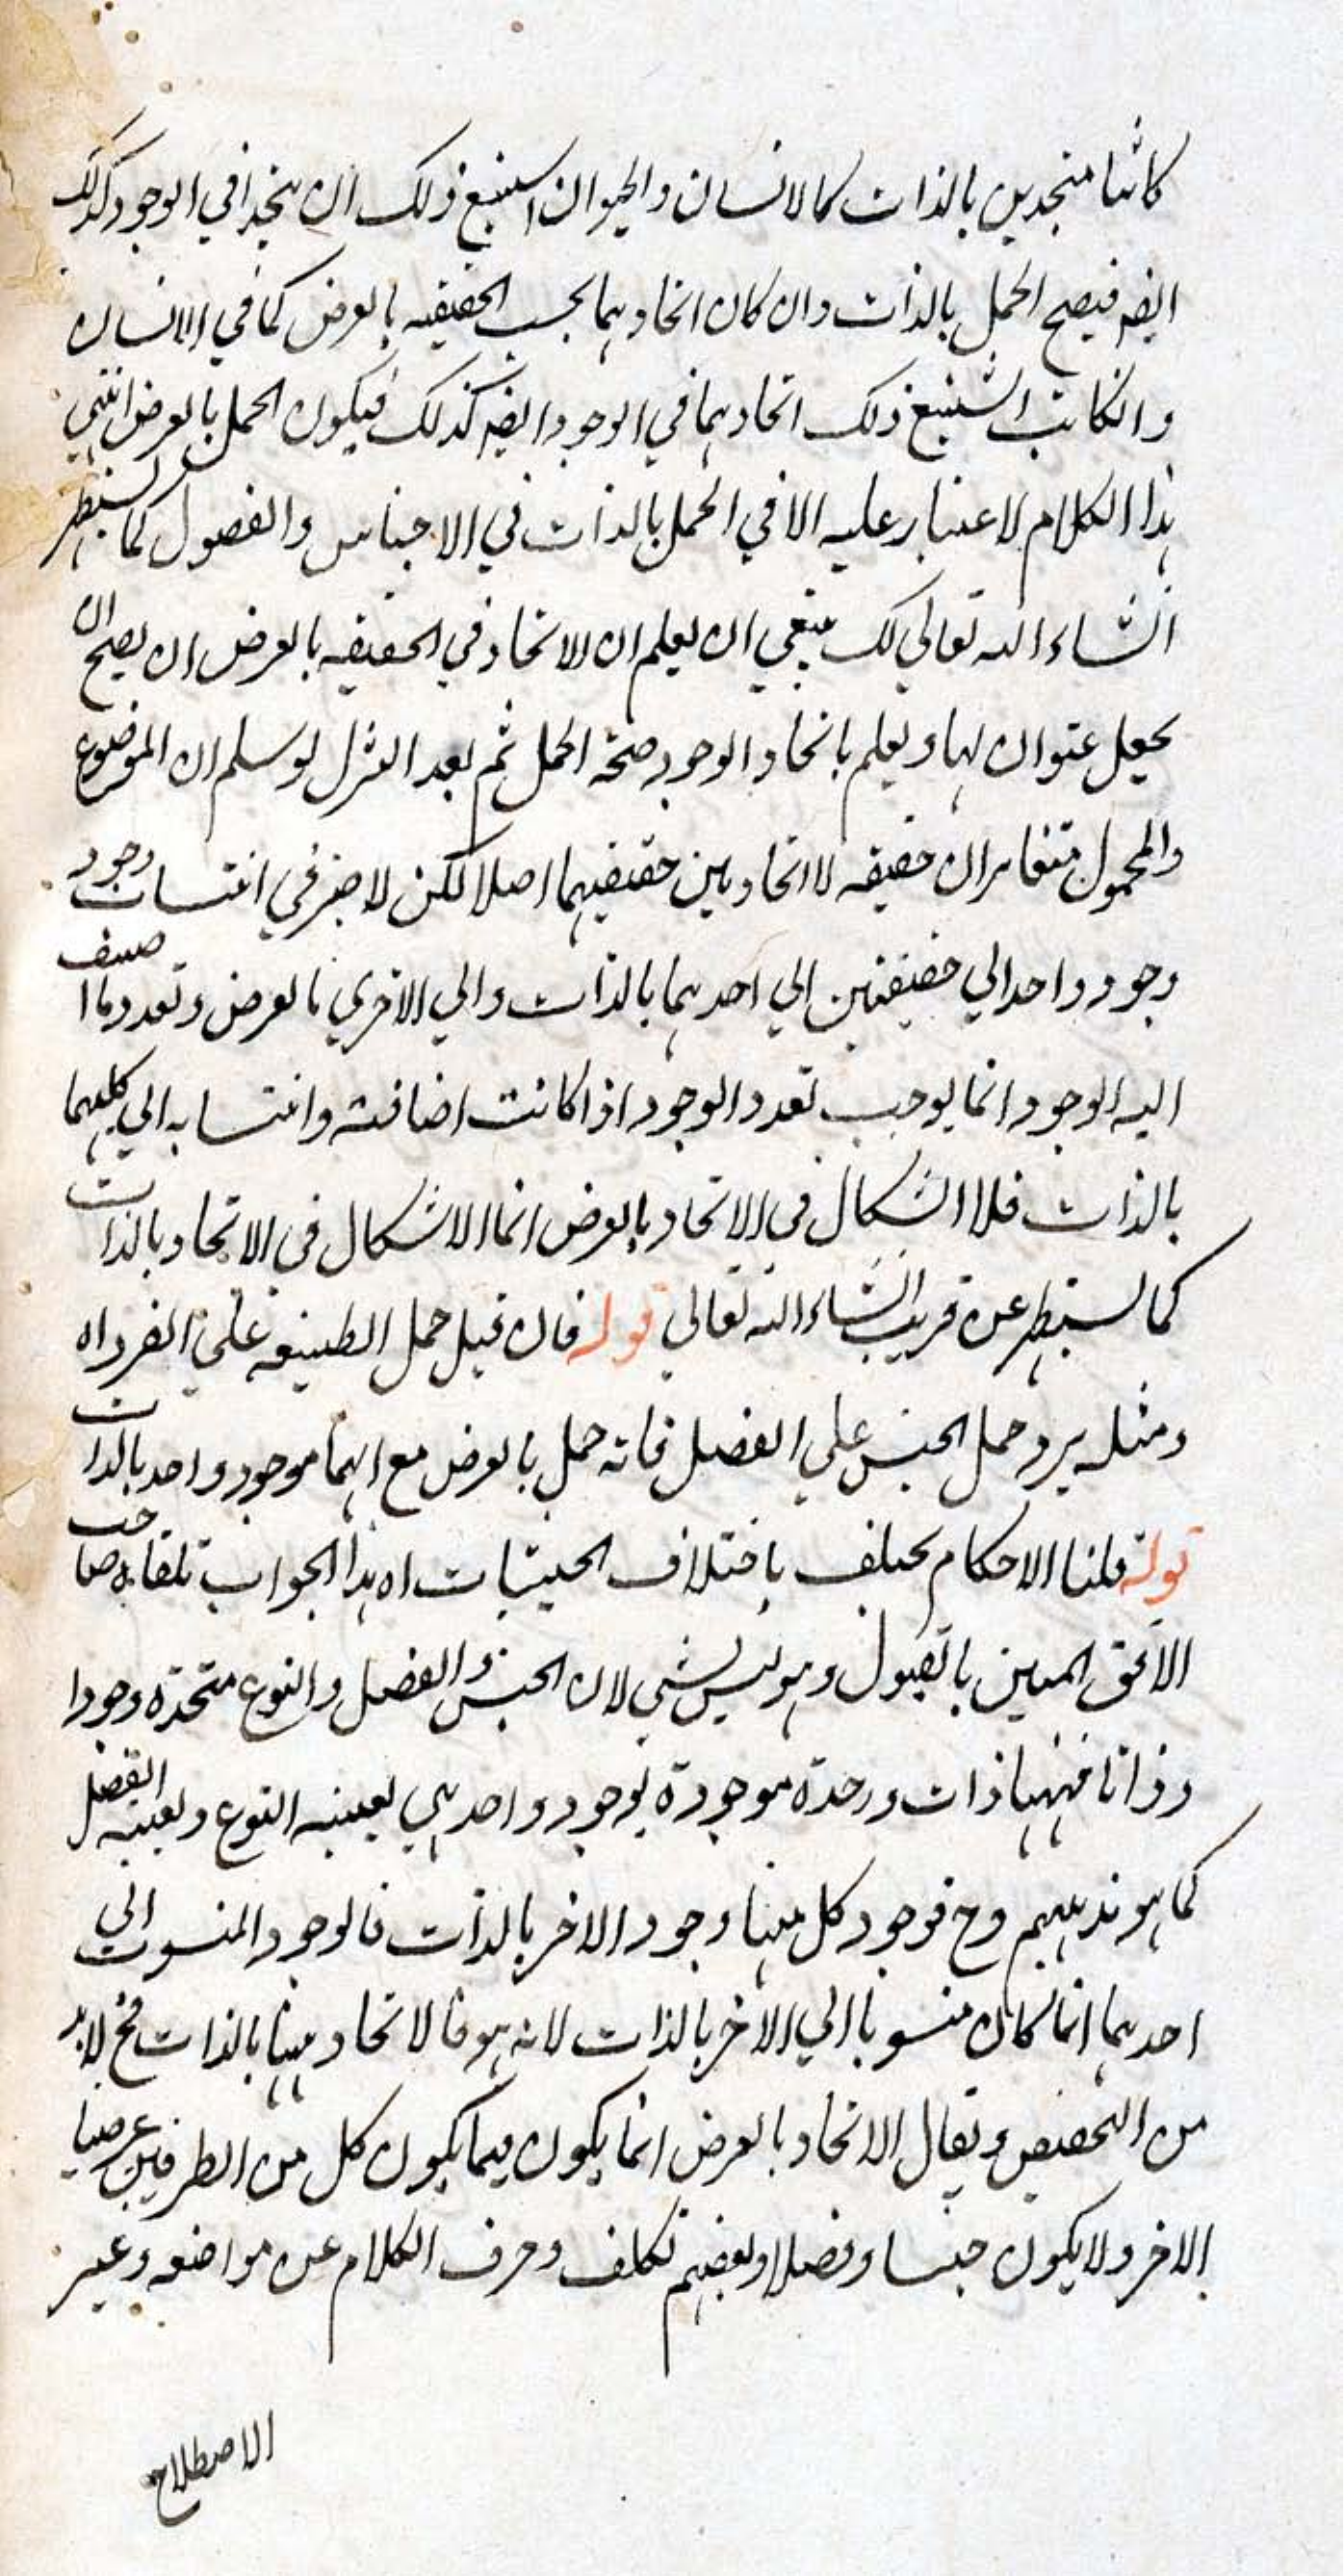 كانتا متحدين بالذات كالانسان والحيوان استتبع ذلك ان يتحدا في الوجود كذلك
ايضه فيصح الحمل بالذات وان كان اتحادهما بحسب الحقيقه بالعرض كما في الانسان
والكاتب استتبع ذلك اتحادهما في الوجود ايضه كذلك فيكون الحمل بالعرض انتهي
هذا الكلام لا غبار عليه الا في الحمل بالذات في الاجناس والفصول كما سيظهر
انشاء الله تعالي لك ينبغي ان يعلم ان الاتحاد في الحقيقه بالعرض ان يصح ان
يجعل عنوان لها ويعلم باتحاد الوجود صحة الحمل ثم بعد التنزل لو سلم ان الموضوع
والمحمول متغايران حقيقه لا اتحاد بين حقيقتيهما اصلا لكن لا ضير في انتساب وجود
وجود واحد الي حقيقتين الي احدهما بالذات والي الاخري بالعرض وتعدد ما اضيف
اليه الوجود انما يوجب تعدد الوجود اذا كانت اضافته وانتسابه الي كليهما
بالذات فلا اشكال في الاتحاد بالعرض انما الاشكال في الاتحاد بالذات
كما سيظهر عن قريب انشاء الله تعالي قوله فان قيل حمل الطبيعه علي الفرد اه
ومثله يرد حمل الجنس علي الفصل فانه حمل بالعرض مع انهما موجود واحد بالذات
قوله قلنا الاحكام يختلف باختلاف الحيثيات اه هذا الجواب تلقاه صاحب
الافق المبين بالقبول وهو ليس بشي لان الجنس والفصل والنوع متحدة وجودا
وذاتا فنهنا ذات وحدة موجودة بوجود واحد هي بعينه النوع وبعينه الفصل
كما هو مذهبهم وح فوجود كل منها وجود الاخر بالذات فالوجود المنسوب الي
احدهما انما كان منسوبا الي الاخر بالذات لانه هو فالاتحاد ههنا بالذات فح لابد
من التخصيص ويقال الاتحاد بالعرض انما يكون فيما يكون كل من الطرفين عرضيا
الاخر ولا يكون جنسا وفصلا وبعضهم تكلف وحرف الكلام عن مواضعه وغير
الاصطلاح